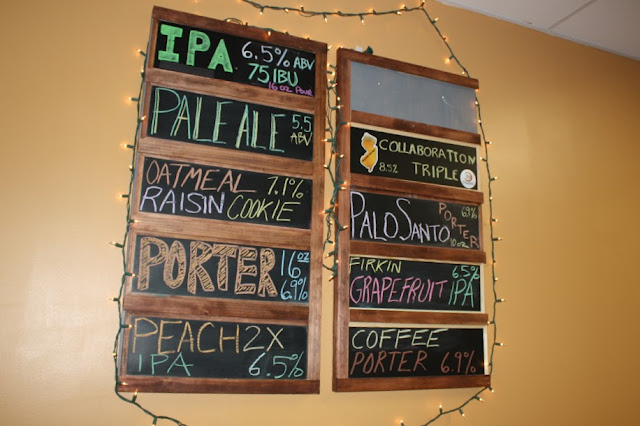 IPA 6.5% ABV
75 IBU
16 oz Pour
PALE ALE 5.5
ABV
OATMEAL 7.1%
RAISIN COOKIE
PORTER 16 oz
6.9%
PEACH 2X
IPA 6.5%
COLLABORATION
8.5% TRIPLE
PALO SANTO PORTER 6.9%
10 oz
FIRKIN 6.5%
GRAPEFRUIT IPA
COFFEE
PORTER 6.9%